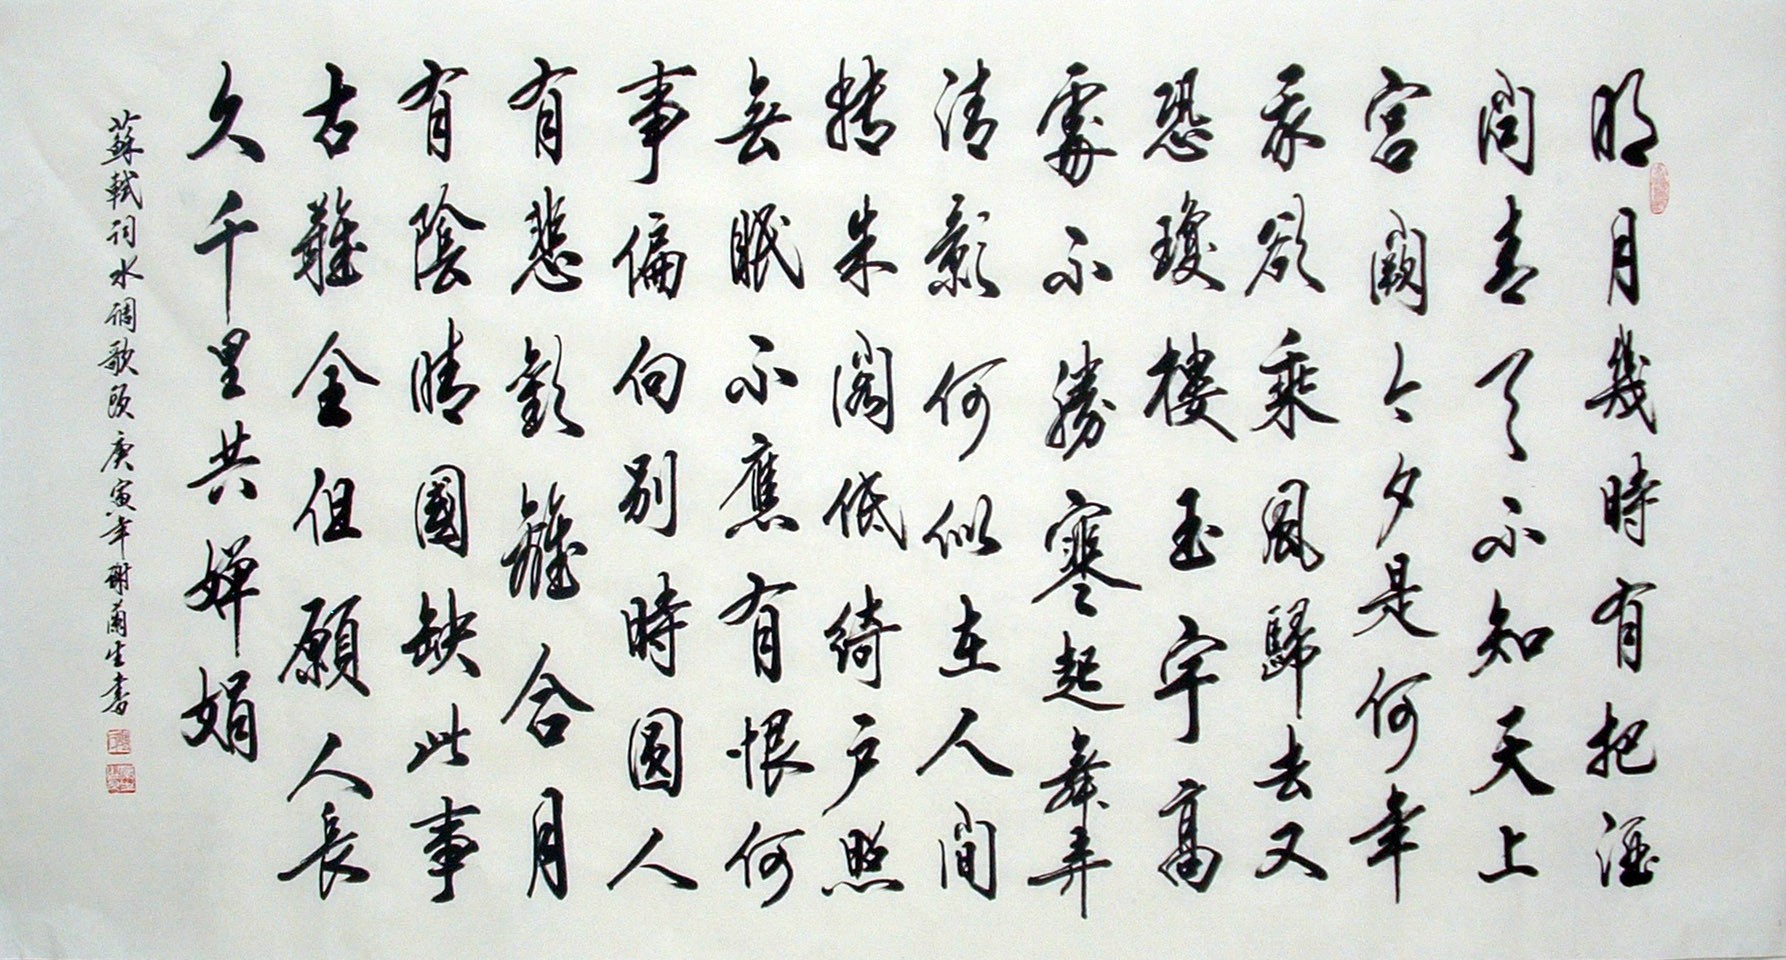 明月幾時有把酒
問青天不知天上
宮闕今夕是何年
我欲乘風歸去又
恐瓊樓玉宇高
處不勝寒起舞弄
清影何似在人間
轉朱閣低綺戶照
無眠不應有恨何
事偏向別時圓人
有悲歡離合月
有陰晴圓缺此事
古難全但願人長
久千里共嬋娟
蘇軾詞水調歌頭庚寅年謝蘭生書